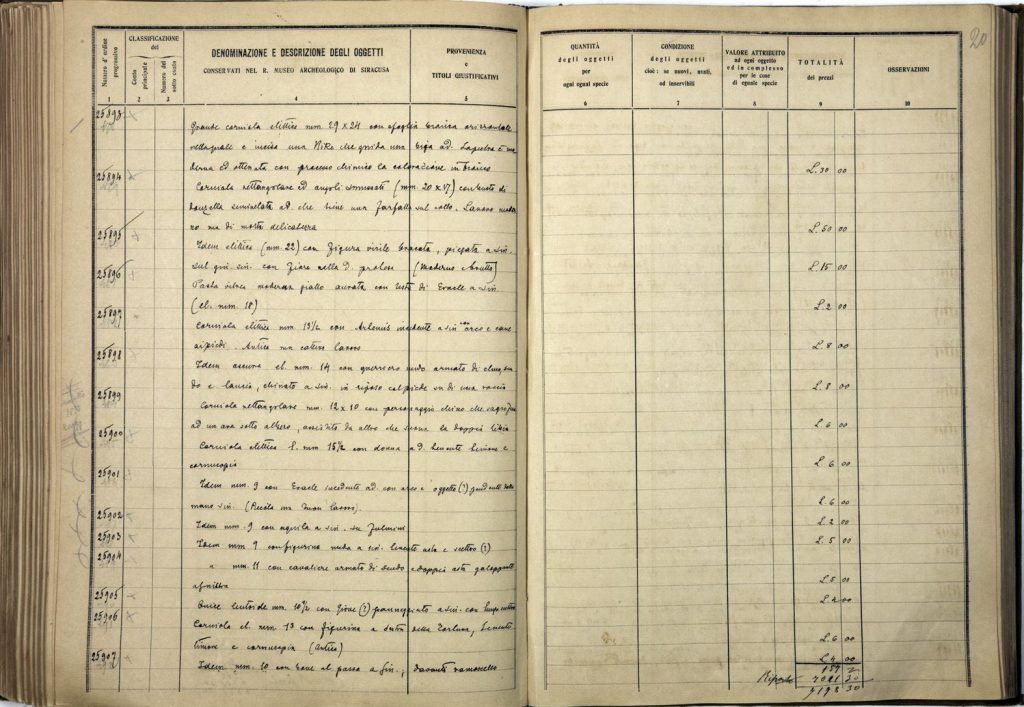 CLASSIFICAZIONE
del
Numero d'ordine progressivo
Conto principale
Numero del sotto conto
DENOMINAZIONE E DESCRIZIONE DEGLI OGGETTI
CONSERVATI NEL R. MUSEO ARCHEOLOGICO DI SIRACUSA
PROVENIENZA
e
TITOLI GIUSTIFICATIVI
1 2 3 4 5
25893
Grande corniola elittica mm. 29 x 24 con sfoglia bianca orizzontale
e incisa una Nike che guida una biga ad.
ed ottenuta con processo chimico la colorazione in bianco
25894
Corniola rettangolare ed angoli smussati (mm. 20 x 17) con busto di
che tiene una farfalla sul collo. Lavoro
ma di molta delicatezza
25895
Idem elittica (mm. 22) con figura virile, piegata a sin.
sul gin. sin. con fiore nella d. (Moderno)
25896
Pasta vitrea moderna giallo aurata con testa di Eracle a sin.
(el. mm. 18)
25897
Corniola elittica mm. 13½ con Artemis incedente a sin con arco e cane
ai piedi. Antica ma cattivo lavoro
25898
Idem oscura el. mm. 14 con guerriero nudo armato di
e lancia, chinato a sin. in riposo col piede su di una roccia
25899
Corniola rettangolare mm. 12 x 10 con personaggio chino che
ad un ara sotto albero, assistito da altro che suona la doppia tibia
25900
Corniola elittica l. mm. 15½ con donna a d. tenente timone e
cornucopia
25901
Idem mm. 9 con Eracle incedente ad. con arco e oggetto (?) pendente dalla
mano sin. (Piccola ma buon lavoro).
25902
Idem mm. 9 con aquila a sin. su fulmini
25903
Idem mm 9 con figurina nuda a sin. tenente asta e scettro (?)
25904
" mm. 11 con cavaliere armato di scudo e doppia asta galoppante
a sinistra
25905
Onice lentoide mm. 10½ con Giove (?) panneggiato a sin. con lungo scettro
25906
Corniola el. mm. 13 con figurina a destra della Fortuna, tenente
timone e cornucopia (Antica)
25907
Idem mm. 10 con bove al passo a sin., davanti ramoscello
20
QUANTITÀ
degli oggetti
per
ogni egual specie
CONDIZIONE
degli oggetti
cioè: se nuovi, usati,
od inservibili
VALORE ATTRIBUITO
ad ogni oggetto
ed in complesso
per le cose
di eguale specie
TOTALITÀ
dei prezzi
OSSERVAZIONI
6 7 8 9 10
L. 30 00
L. 50 00
L. 15 00
L. 2 00
L. 8 00
L. 8 00
L. 6 00
L. 6 00
L. 6 00
L. 2 00
L. 5 00
L. 5 00
L. 4 00
L. 6 00
L. 4 00
157
Riporto 7021 30
7178 30